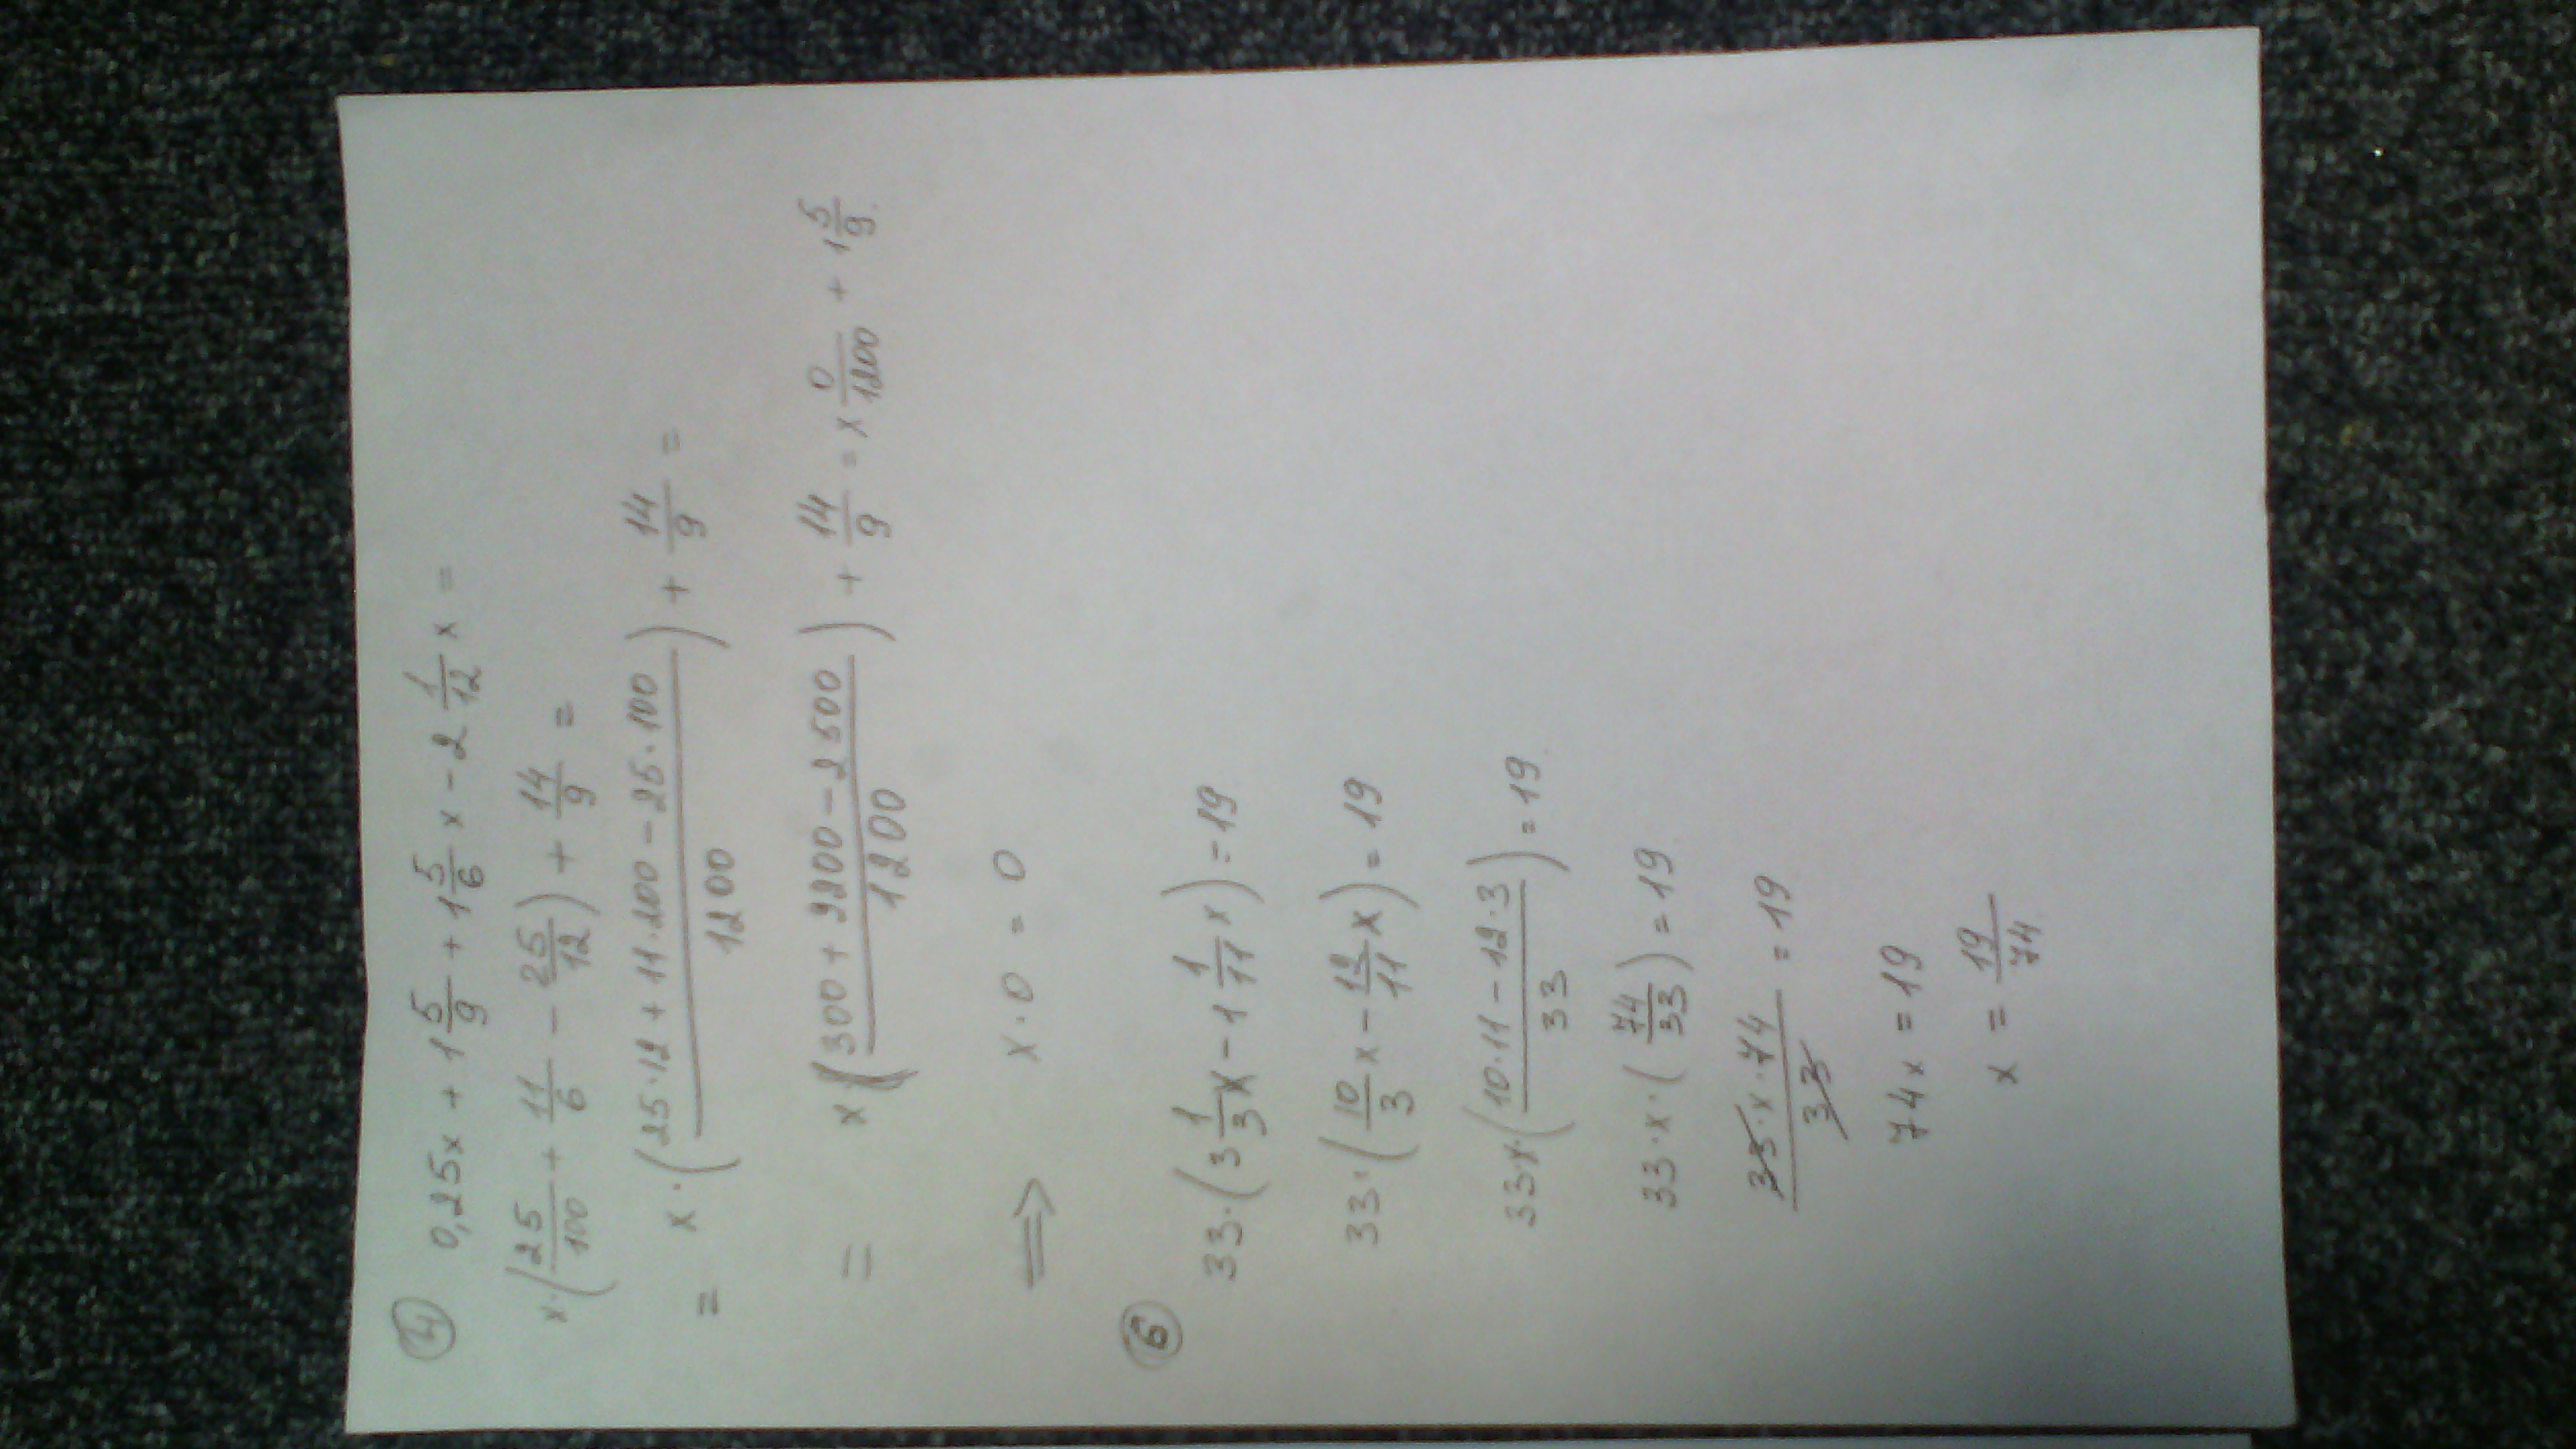 ④ 0,25x + 1 5/9 + 1 5/6 x - 2 1/12 x =
x·(25/100 + 11/6 - 25/12) + 14/9 =
= x·((25·12 + 11·200 - 25·100)/1200) + 14/9 =
= x((300 + 2200 - 2500)/1200) + 14/9 = x 0/1200 + 1 5/9.
⟹ x·0 = 0
⑥ 33·(3 1/3 x - 1 1/11 x) = 19
33·(10/3 x - 12/11 x) = 19
33·x·((10·11 - 12·3)/33) = 19.
33·x·(74/33) = 19
33·x·74/33 = 19
74x = 19
x = 19/74.